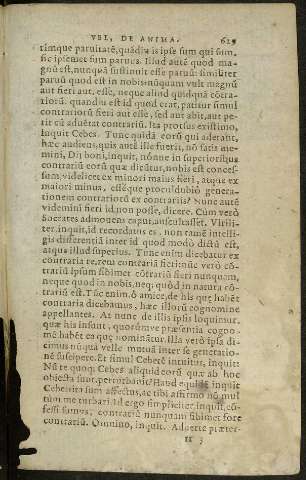 VEL, DE ANIMA. 629
timque paruitatē, quādiu is ipse sum qui sum,
sic ipsemet sum paruus. Illud autē quod mag-
nū est, nunquā sustinuit esse paruū: similiter
paruū quod est in nobis nūquam vult magnū
aut fieri aut. esse, neque aliud quidquā cōtra-
riorū. quandiu est id quod erat, patitur simul
contrariorū fieri aut esse, sed aut abit, aut pe-
rit cū aduētat contrariū. Ita prorsus existimo,
inquit Cebes. Tunc quidā eorū qui aderant,
hæc audiens, quis autē ille fuerit, nō satis me-
mini, Dij boni, inquit, nónne in superioribus
contrariū eorū quæ dicūtur, nobis est conces-
sum, videlicet ex minori maius fieri, atque ex
maiori minus, esséque procul dubiò genera-
tionem contrariorū ex contrariis? Nunc autē
videmini fieri id non posse, dicere. Cùm verò
Socrates admouens caput auscultasset. Virili-
ter, inquit, id recordatus es. non tamē intelli-
gis differentiā inter id quod modò dictū est,
atque illud superius. Tunc enim dicebatur ex
contraria re, rem contrariā fieri: nūc verò cō-
trariū ipsum sibimet cōtrariū fieri nunquam,
neque quod in nobis, neq; quod in natura cō-
trariū est. Tūc enim, ô amice, de his quę habēt
contraria dicebamus, hæc illorū cognomine
appellantes. At nunc de illis ipsis loquimur,
quæ his insunt, quorúmve præsentia cogno-
mē habēt ea quę nominātur. Illa verò ipsa di-
cimus nūquā velle mutuā inter se generatio-
nē suscipere. Et simul Cebetē intuitus, inquit:
Nū te quoq; Cebes aliquid eorū quæ ab hoc
obiecta sunt, perturbauit? Haud equidē, inquit
Cebes, ita sum affectus, ac tibi affirmo nō mul
tùm me turbari. Id ergo simpliciter, inquit, cō-
fessi sumus, contrariū nunquam sibimet fore
contrariū. Omnino, inquit. Aduerte præter-